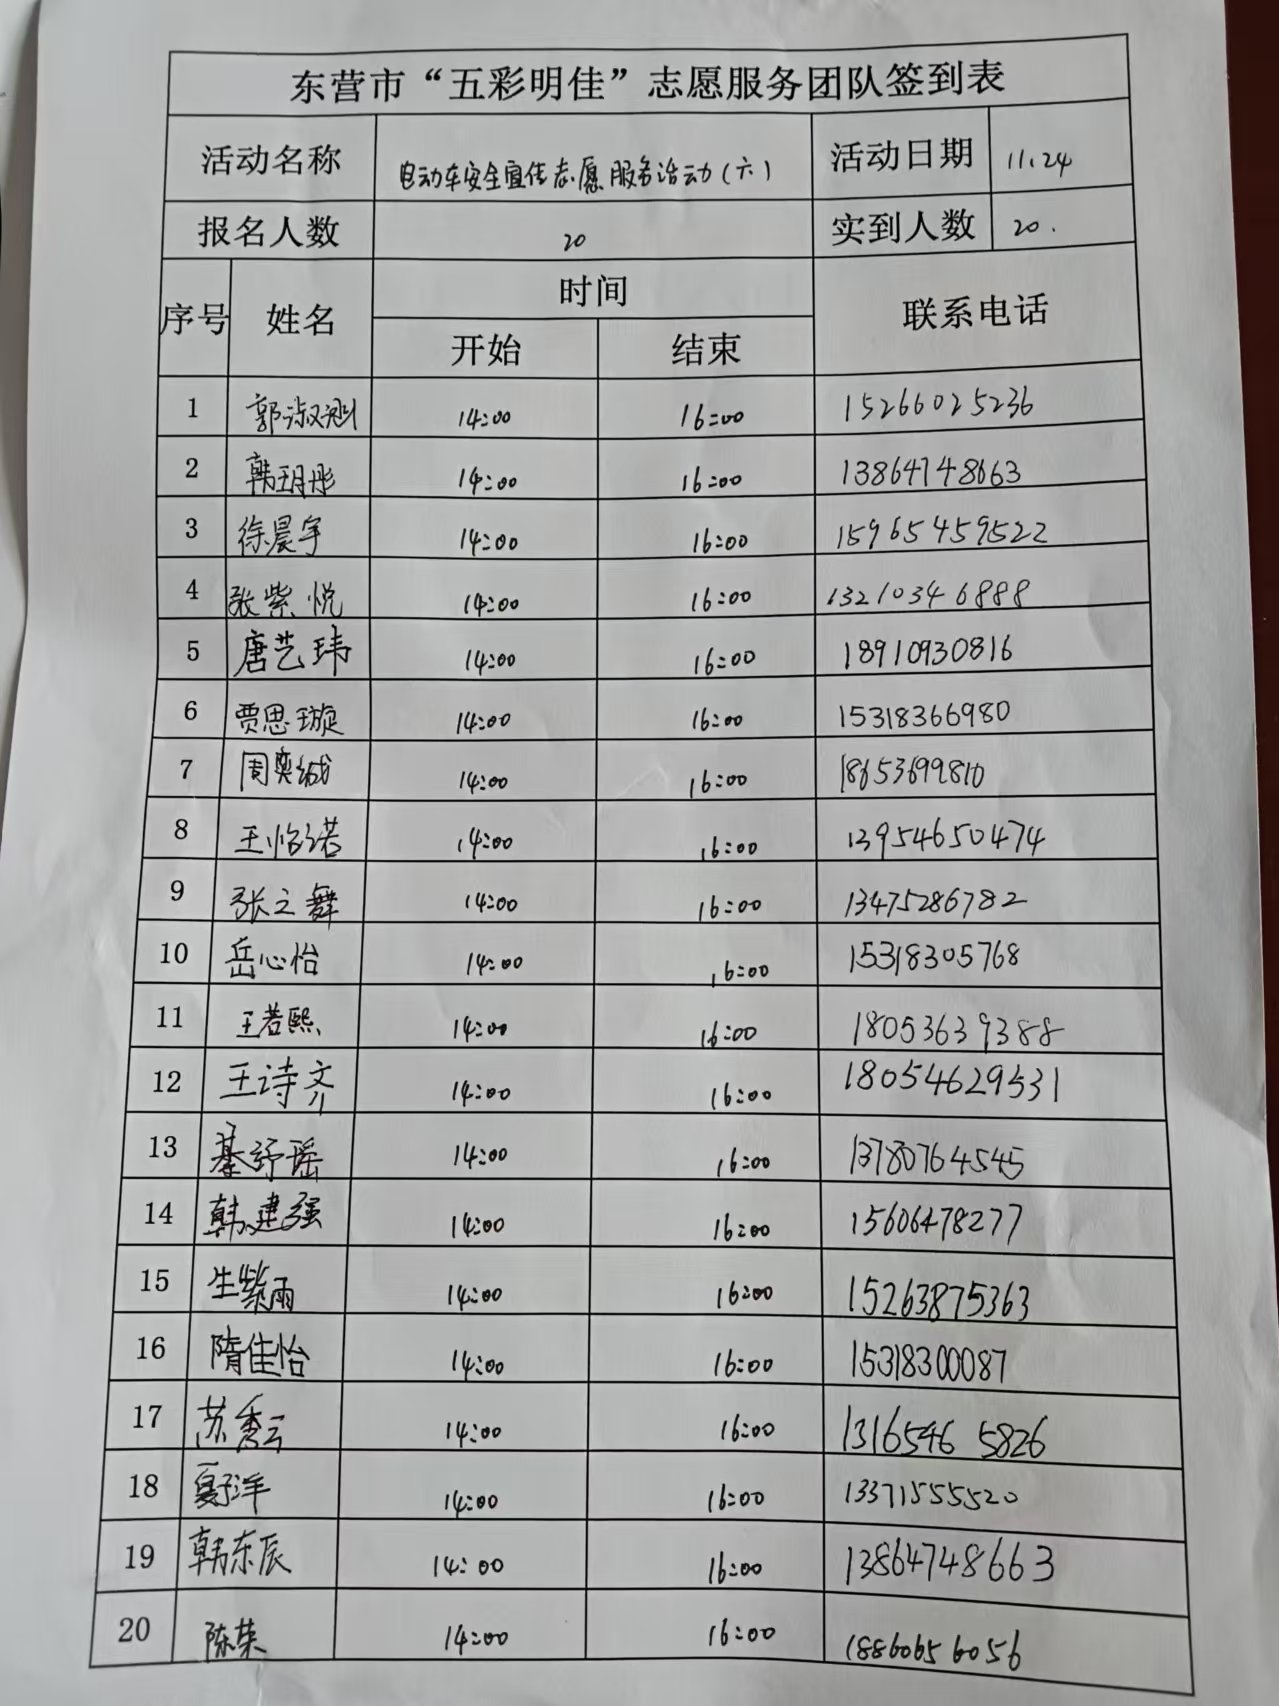 东营市“五彩明佳”志愿服务团队签到表
活动名称 电动车安全宣传志愿服务活动(六) 活动日期 11.24
报名人数 20 实到人数 20.
序号 姓名 时间 联系电话
开始 结束
1 郭淑 14:00 16:00 15266025236
2 韩玥彤 14:00 16:00 13864748663
3 徐晨宇 14:00 16:00 15965459522
4 张紫悦 14:00 16:00 13210346888
5 唐艺玮 14:00 16:00 18910930816
6 贾思璇 14:00 16:00 15318366980
7 周奕缄 14:00 16:00 18653699810
8 王怡诺 14:00 16:00 13954650474
9 张之舞 14:00 16:00 13475286782
10 岳心怡 14:00 16:00 15318305768
11 王若熙 14:00 16:00 18053639388
12 王诗齐 14:00 16:00 18054629531
13 綦妤瑶 14:00 16:00 13780764545
14 韩建强 14:00 16:00 15606478277
15 生紫雨 14:00 16:00 15263875363
16 隋佳怡 14:00 16:00 15318300087
17 苏秀云 14:00 16:00 13165465826
18 夏洋 14:00 16:00 13371555520
19 韩东辰 14:00 16:00 13864748663
20 陈荣 14:00 16:00 18860656056